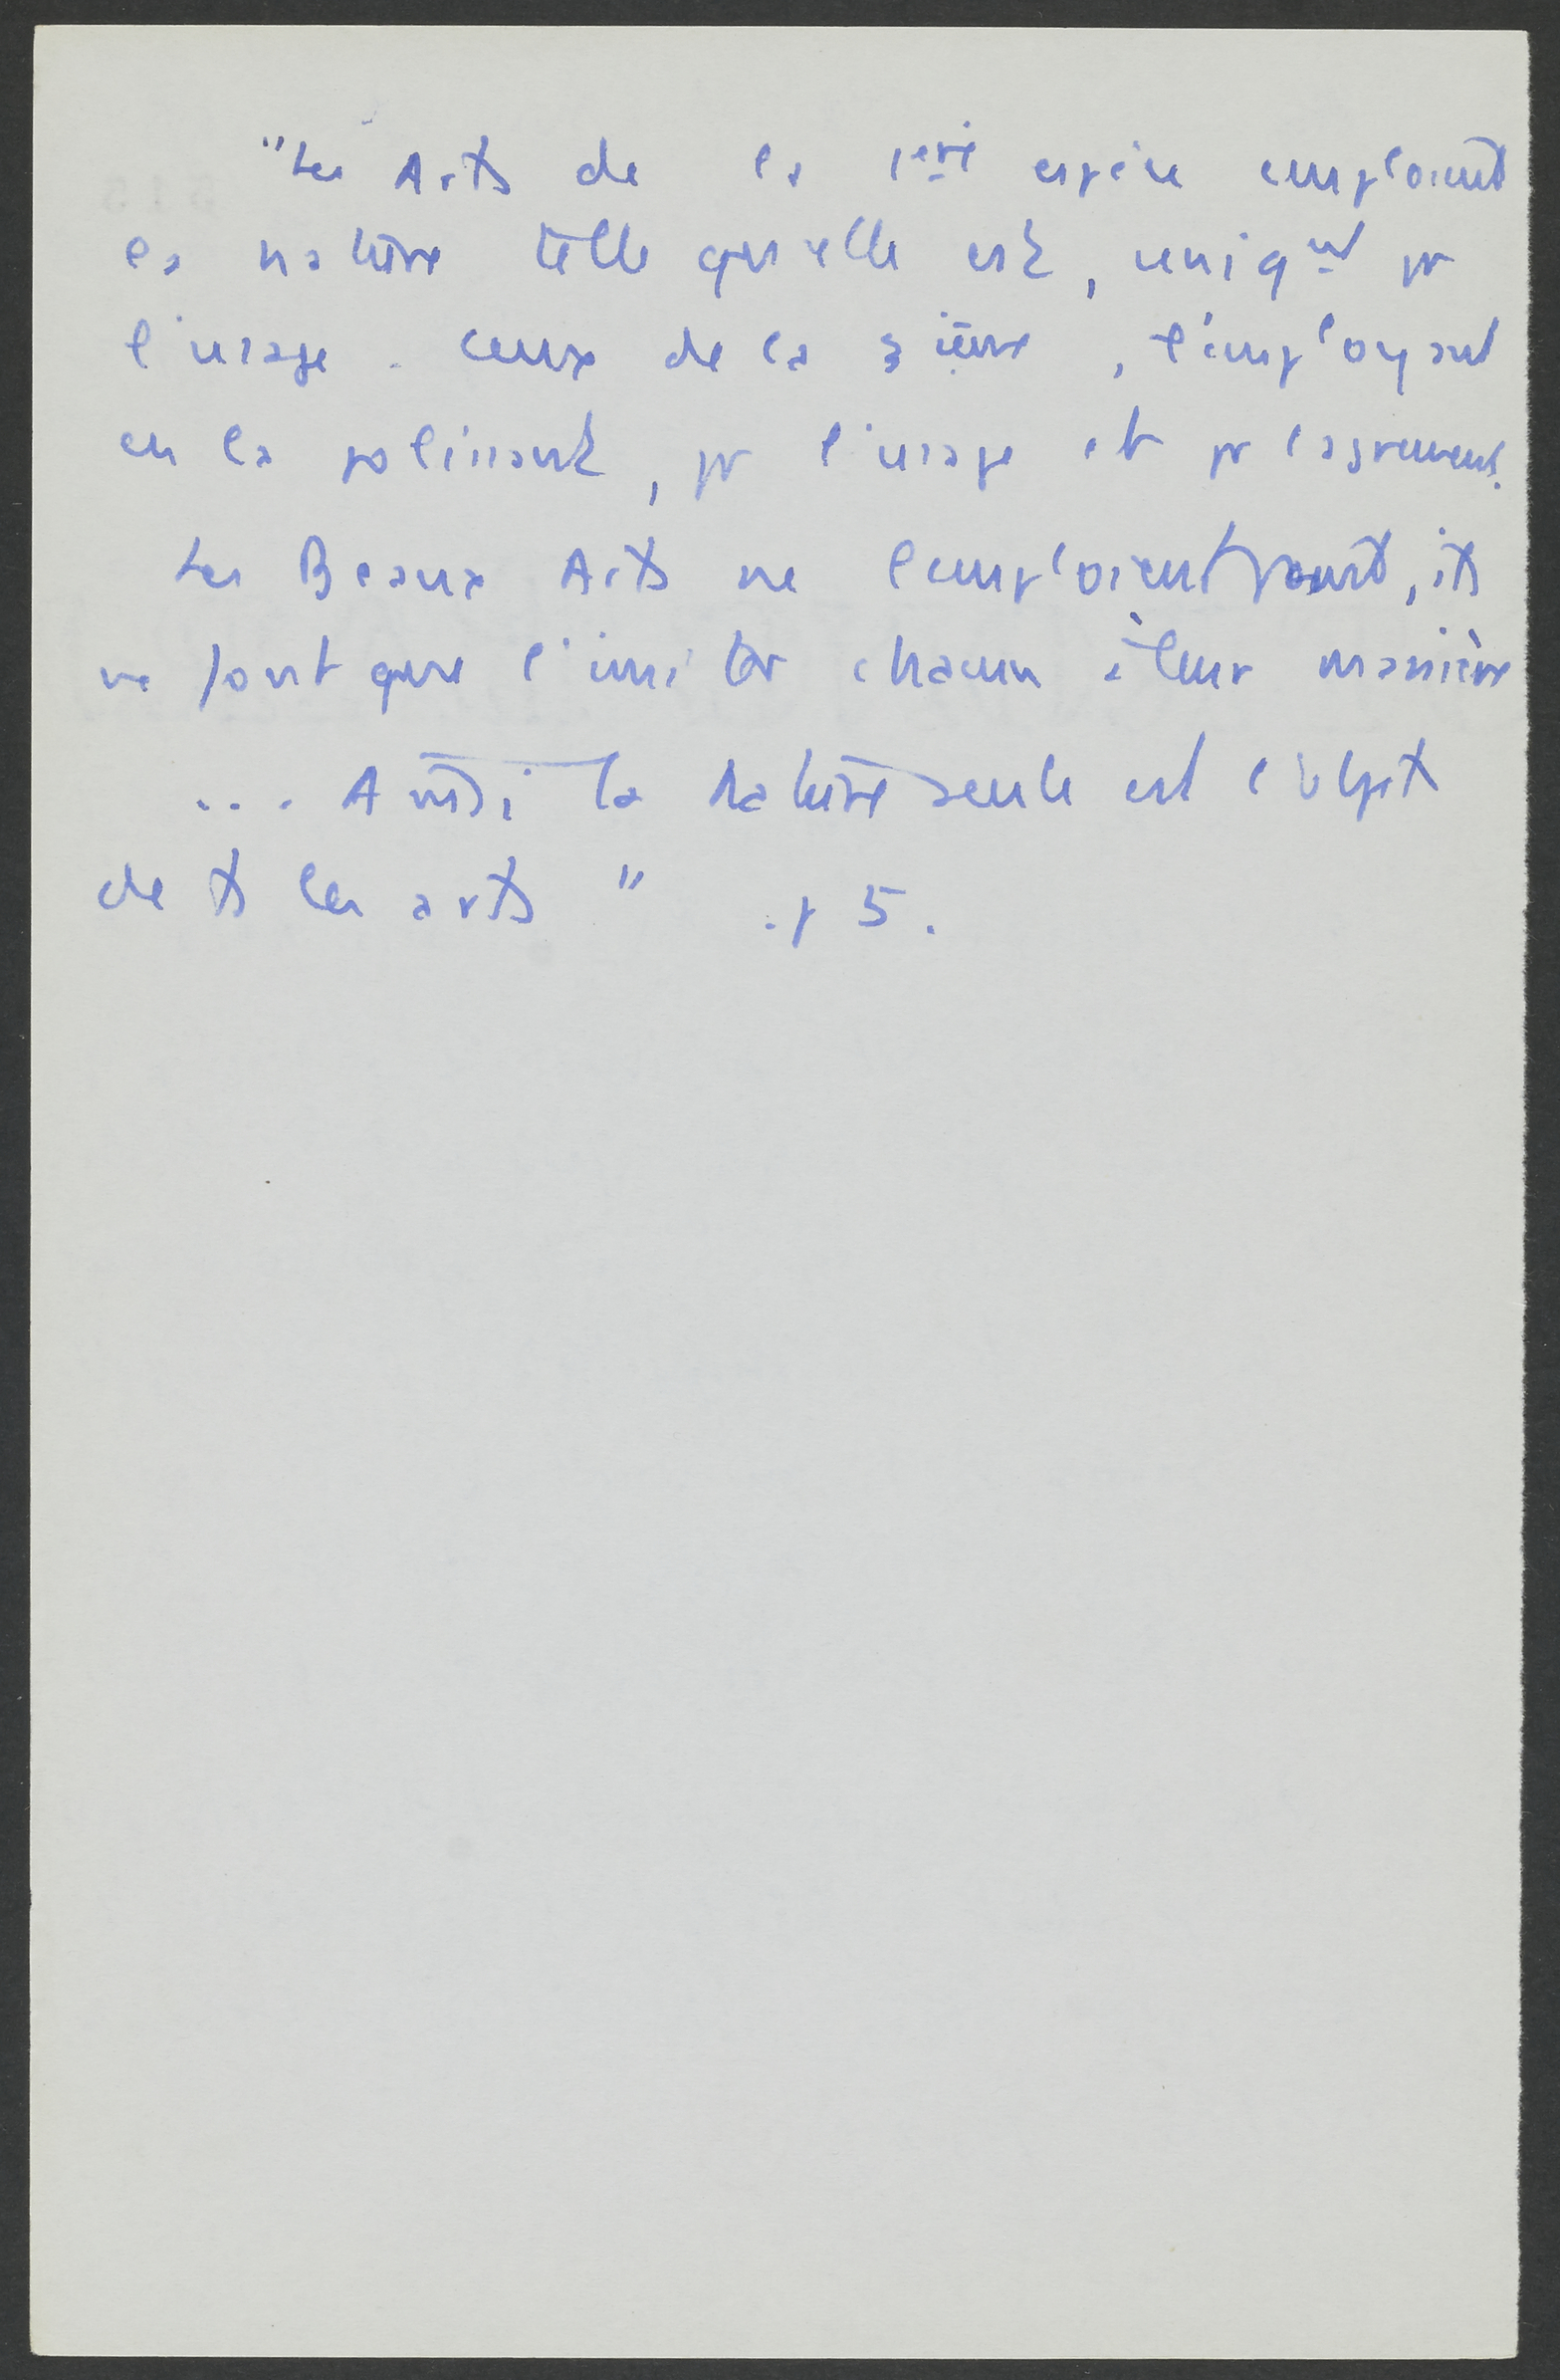 "Les Arts de la 1ere espèce emploient
la nature telle qu'elle est, uniqnt pr
l'usage. Ceux de la 3ième, l'employant
en la polissant, pr l'usage et pr l'agrement.
Les Beaux Arts ne l'emploient point, ils
ne font que l'imiter chacun à leur manière
... Ainsi la Nature seule est l'objet
de ts les arts" .p 5.